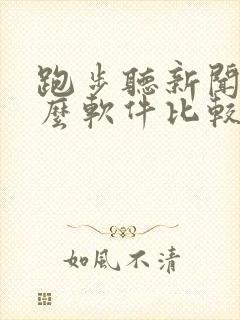 跑步聽新聞
麼軟件比較
如風不清